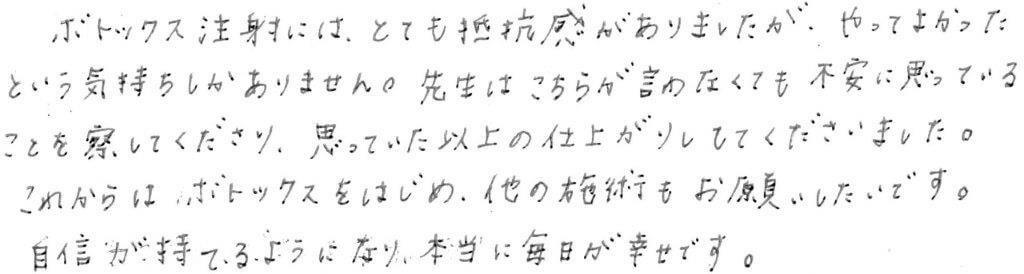 ボトックス注射には、とても抵抗感がありましたが、やってよかった
という気持ちしかありません。先生はこちらが言わなくても不安に思っている
ことを察してくださり、思っていた以上の仕上がりしてくださいました。
これからは、ボトックスをはじめ、他の施術もお願いしたいです。
自信が持てるようになり、本当に毎日が幸せです。